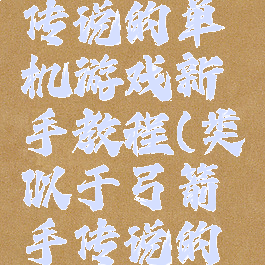 传说的单
机游戏新
手教程(类
似于弓箭
手传说的